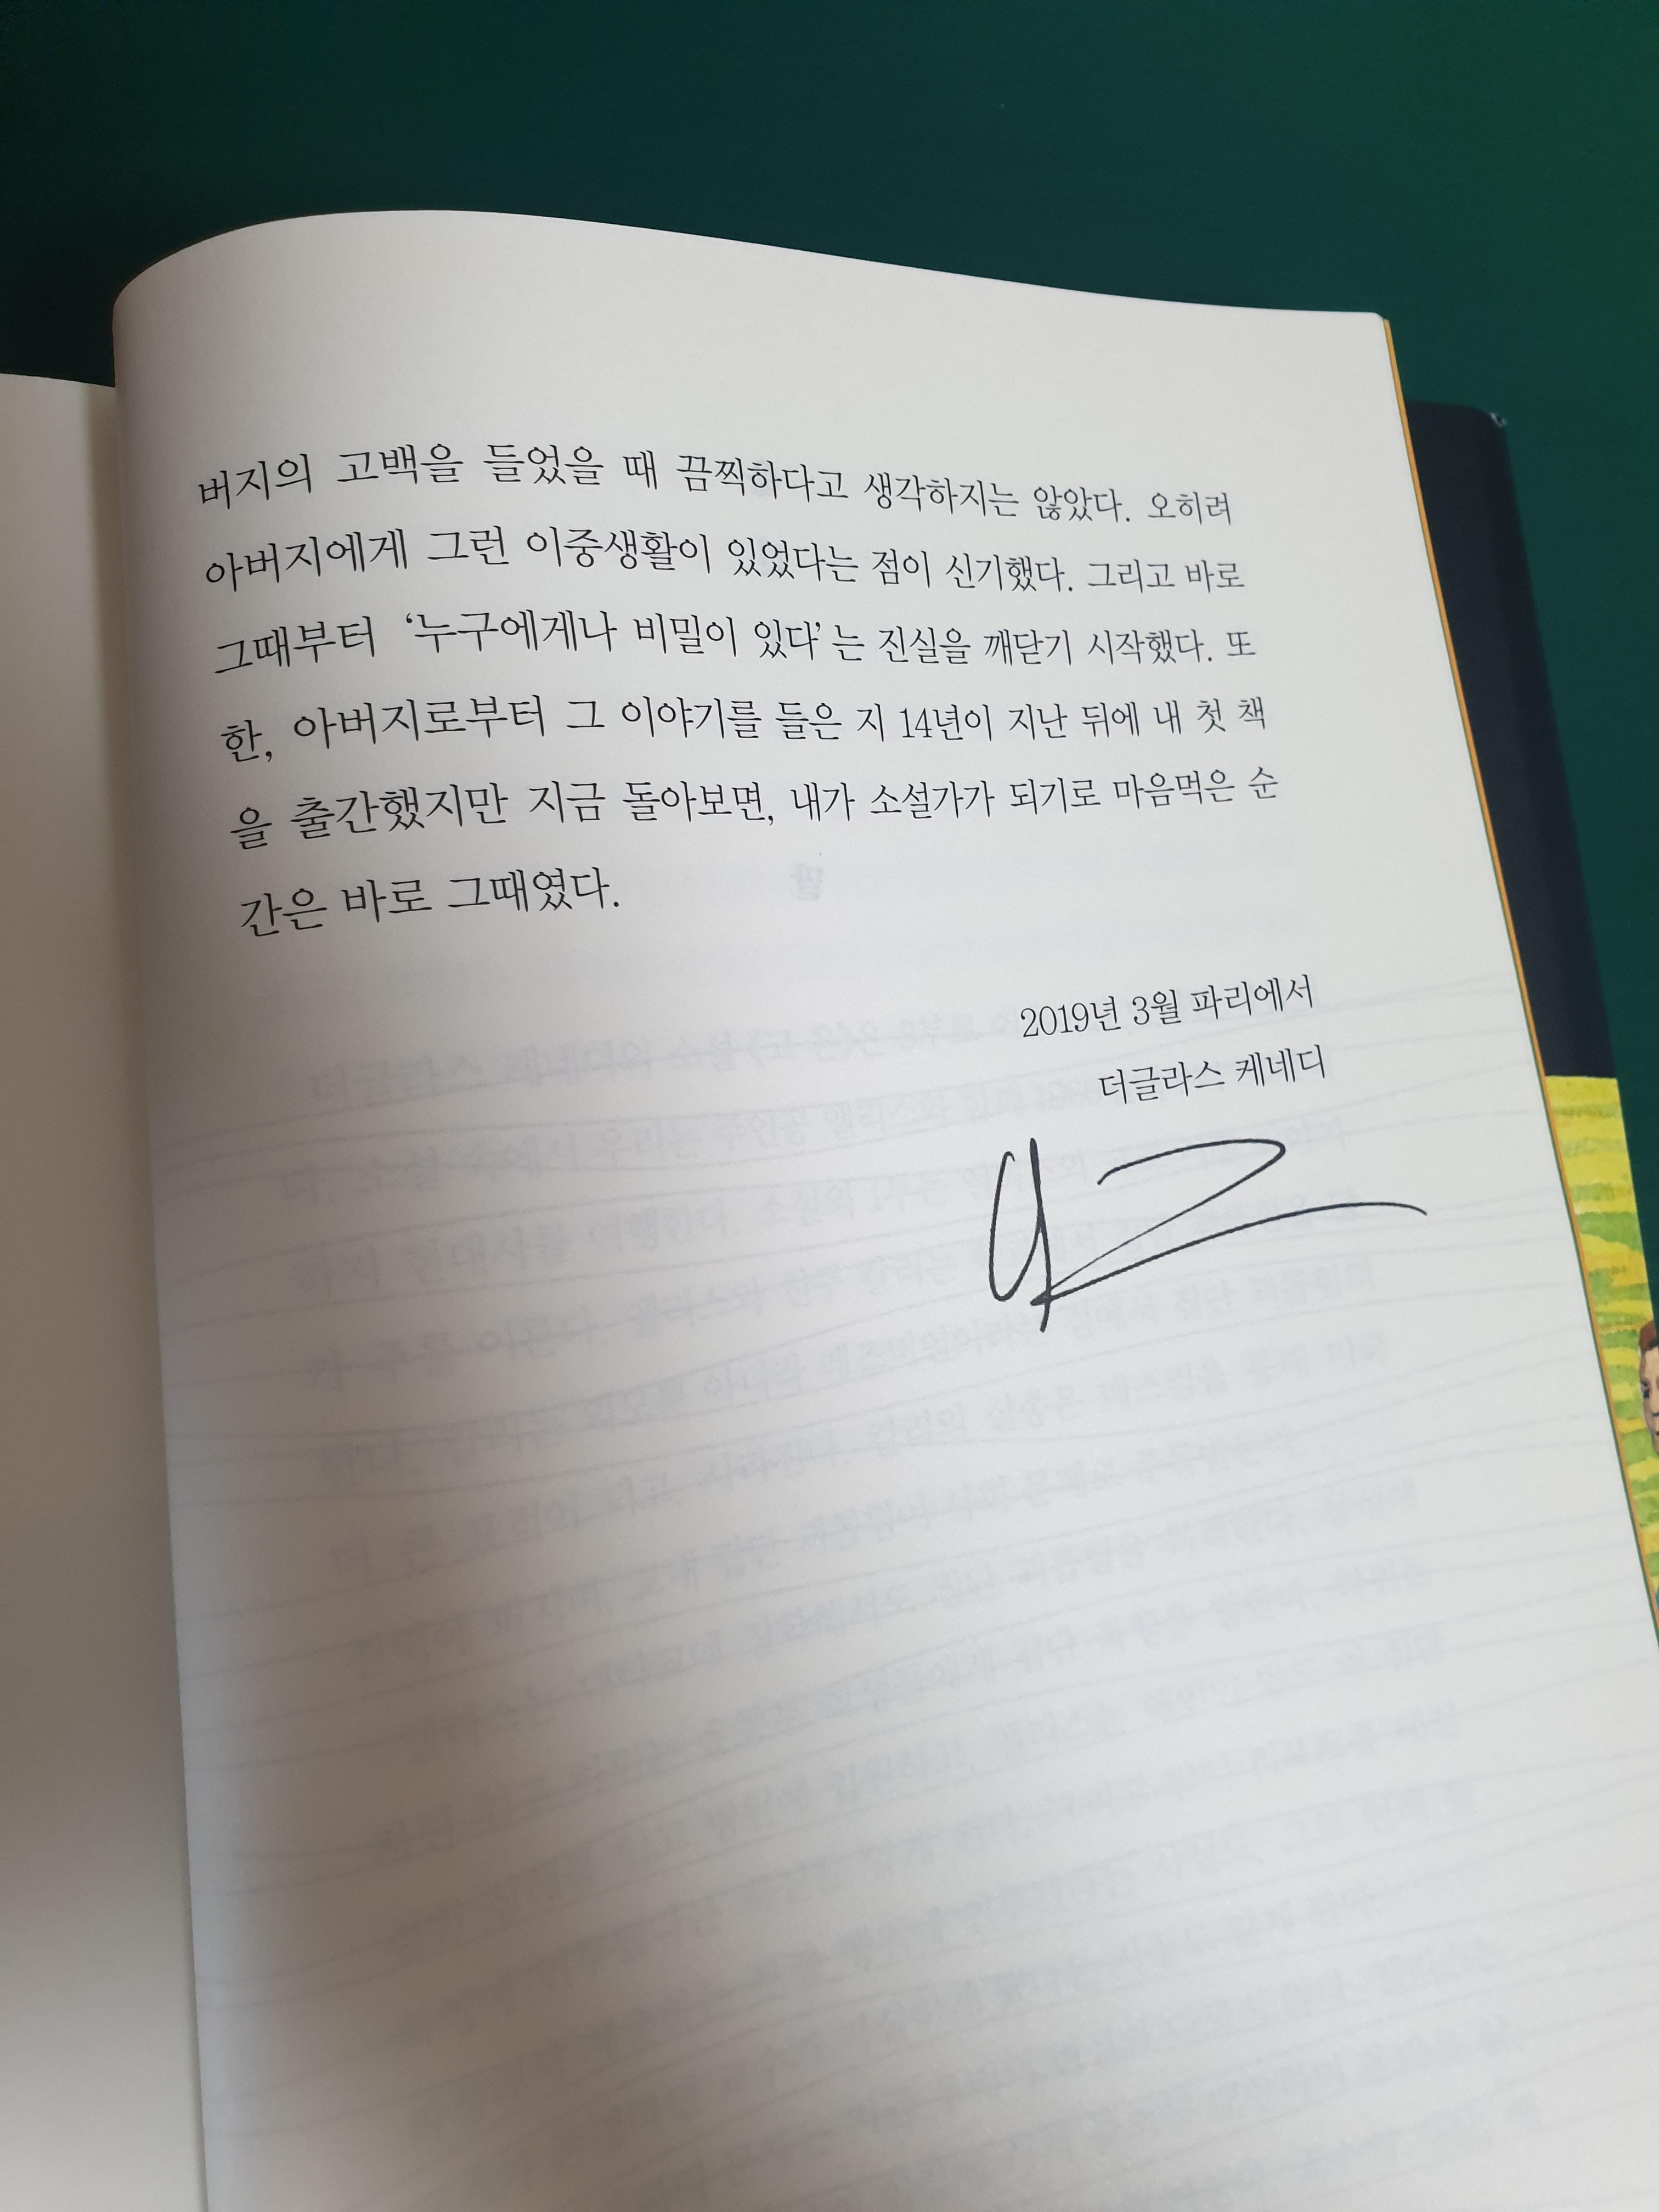 버지의 고백을 들었을 때 끔찍하다고 생각하지는 않았다. 오히려
아버지에게 그런 이중생활이 있었다는 점이 신기했다. 그리고 바로
그때부터 ‘누구에게나 비밀이 있다’는 진실을 깨닫기 시작했다. 또
한, 아버지로부터 그 이야기를 들은 지 14년이 지난 뒤에 내 첫 책
을 출간했지만 지금 돌아보면, 내가 소설가가 되기로 마음먹은 순
간은 바로 그때였다.
2019년 3월 파리에서
더글라스 케네디